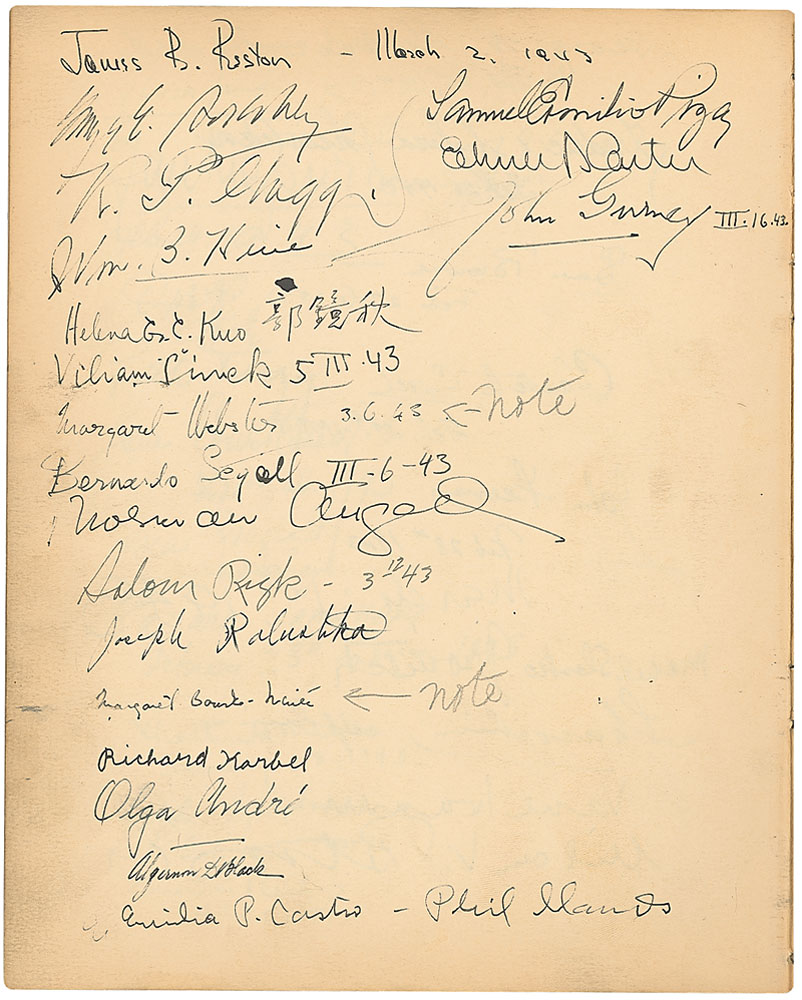 James B. Reston - March 2, 1943
Samuel Emilio Piza
K. P.
John Gurney III.16.43.
Wm. B.
Helena G. C. Kuo 郭鏡秋
Viliam Šimek 5 III.43
Margaret Webster 3.6.43 ← note
Bernardo Segall III-6-43
Norman Angell
Salom Rizk - 3 12 43
Joseph Kalushka
Margaret Bourke-White ← note
Richard Karbel
Olga André
Algernon D. Black
Emilia P. Castro - Phil Islands